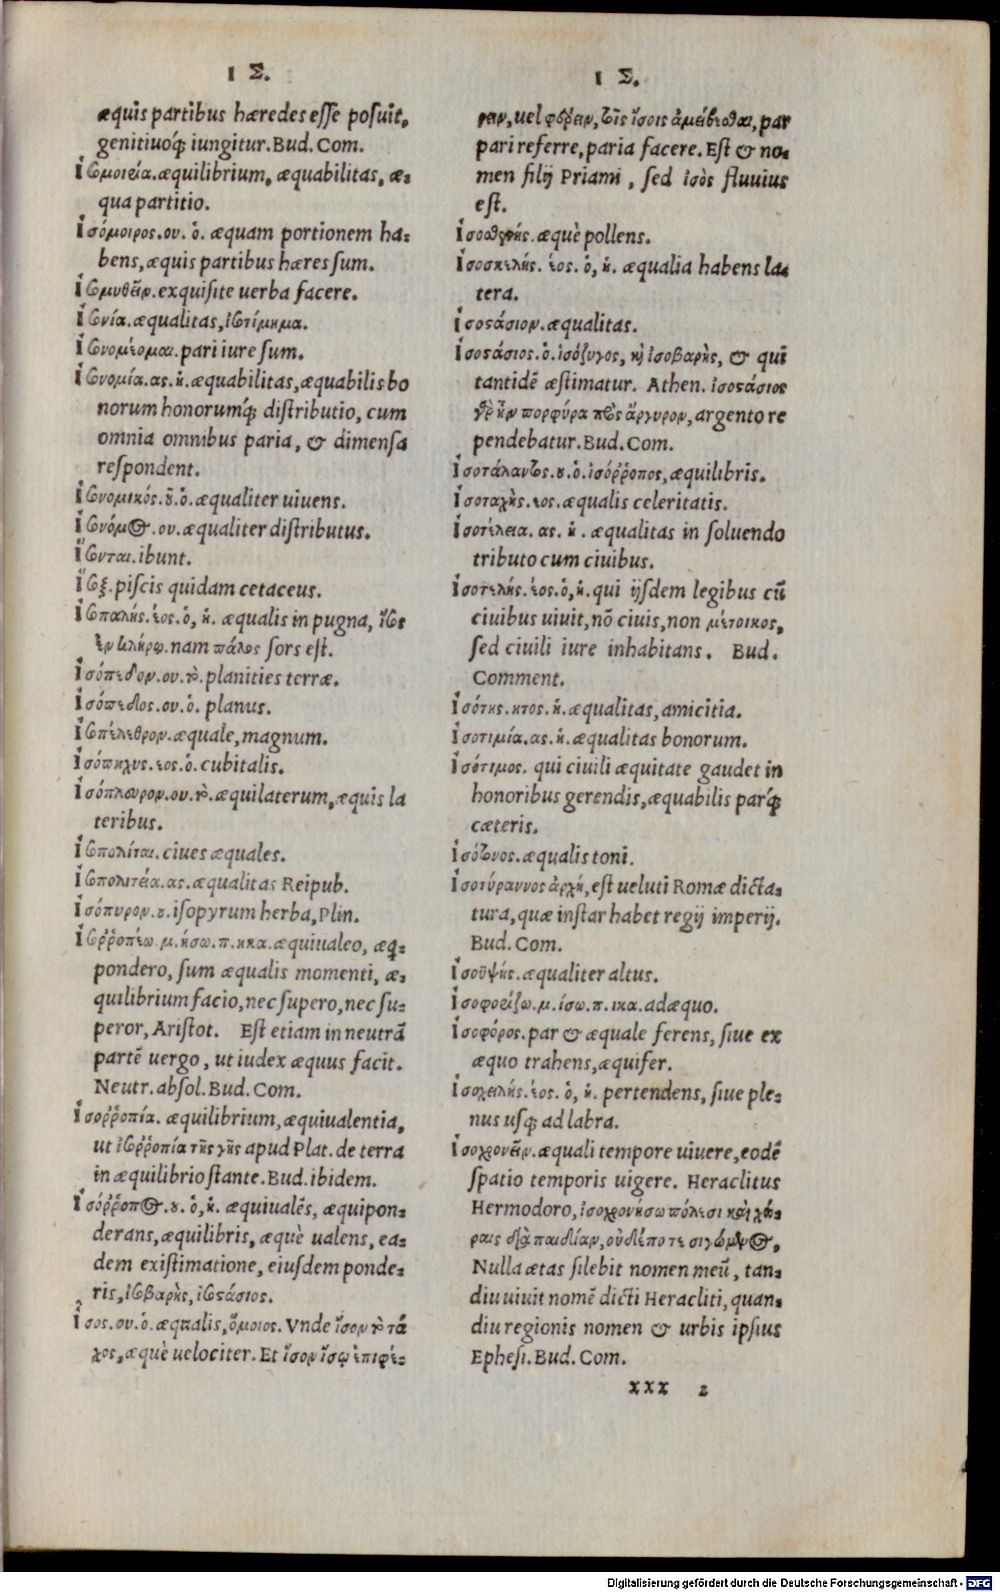 Ι Σ.
æquis partibus hæredes esse posuit,
genitiuoq́; iungitur. Bud. Com.
Ἰσομοιρία. æquilibrium, æquabilitas, æ-
qua partitio.
Ἰσόμοιρος. ου. ὁ. æquam portionem ha-
bens, æquis partibus hæres sum.
Ἰσομυθεῖν. exquisite uerba facere.
Ἰσονία. æqualitas, ἰσοτίμημα.
Ἰσονομέομαι. pari iure sum.
Ἰσονομία. ας. ἡ. æquabilitas, æquabilis bo
norum honorumq́; distributio, cum
omnia omnibus paria, & dimensa
respondent.
Ἰσονομικός. οῦ. ὁ. æqualiter uiuens.
Ἰσόνομος. ου. æqualiter distributus.
Ἴσονται. ibunt.
Ἴσοξ. piscis quidam cetaceus.
Ἰσοπαλής. έος. ὁ, ἡ. æqualis in pugna, ἴσος
ἐν κλήρῳ. nam πάλος sors est.
Ἰσόπεδον. ου. τὸ. planities terræ.
Ἰσόπεδος. ου. ὁ. planus.
Ἰσοπέλεθρον. æquale, magnum.
Ἰσόπηχυς. εος. ὁ. cubitalis.
Ἰσόπλευρον. ου. τὸ. æquilaterum, æquis la
teribus.
Ἰσοπολίται. ciues æquales.
Ἰσοπολιτεία. ας. æqualitas Reipub.
Ἰσόπυρον. ου. isopyrum herba, Plin.
Ἰσοῤῥοπέω. μ. ήσω. π. ηκα. æquiualeo, æq̃-
pondero, sum æqualis momenti, æ-
quilibrium facio, nec supero, nec su-
peror, Aristot. Est etiam in neutrã
partẽ uergo, ut iudex æquus facit.
Neutr. absol. Bud. Com.
Ἰσοῤῥοπία. æquilibrium, æquiualentia,
ut ἰσοῤῥοπία τῆς γῆς apud Plat. de terra
in æquilibrio stante. Bud. ibidem.
Ἰσόῤῥοπος. ου. ὁ, ἡ. æquiualẽs, æquipon-
derans, æquilibris, æquè ualens, ea-
dem existimatione, eiusdem ponde-
ris, ἰσοβαρὴς, ἰσοστάσιος.
Ἴσος. ου. ὁ. æqualis, ὅμοιος. Vnde ἴσον τὸ τά
χος, æquè uelociter. Et ἴσον ἴσῳ ἐπιφέ-
Ι Σ.
ρειν, uel φέρειν, τοῖς ἴσοις ἀμείβεσθαι, par
pari referre, paria facere. Est & no-
men filij Priami, sed ἰσὸς fluuius
est.
Ἰσοσθενής. æquè pollens.
Ἰσοσκελής. έος. ὁ, ἡ. æqualia habens la-
tera.
Ἰσοστάσιον. æqualitas.
Ἰσοστάσιος. ὁ. ἰσόζυγος, καὶ ἰσοβαρὴς, & qui
tantidẽ æstimatur. Athen. ἰσοστάσιος
γὰρ ἦν πορφύρα πρὸς ἄργυρον, argento re
pendebatur. Bud. Com.
Ἰσοτάλαντος. ου. ὁ. ἰσόῤῥοπος, æquilibris.
Ἰσοταχὴς. εος. æqualis celeritatis.
Ἰσοτέλεια. ας. ἡ. æqualitas in soluendo
tributo cum ciuibus.
Ἰσοτελής. έος. ὁ, ἡ. qui ijsdem legibus cũ
ciuibus uiuit, nõ ciuis, non μέτοικος,
sed ciuili iure inhabitans. Bud.
Comment.
Ἰσότης. ητος. ἡ. æqualitas, amicitia.
Ἰσοτιμία. ας. ἡ. æqualitas bonorum.
Ἰσότιμος. qui ciuili æquitate gaudet in
honoribus gerendis, æquabilis parq́;
cæteris.
Ἰσότονος. æqualis toni.
Ἰσοτύραννος ἀρχή, est ueluti Romæ dicta-
tura, quæ instar habet regij imperij.
Bud. Com.
Ἰσοϋψής. æqualiter altus.
Ἰσοφορίζω. μ. ίσω. π. ικα. adæquo.
Ἰσοφόρος. par & æquale ferens, siue ex
æquo trahens, æquifer.
Ἰσοχειλής. έος. ὁ, ἡ. pertendens, siue ple-
nus usq; ad labra.
Ἰσοχρονεῖν. æquali tempore uiuere, eodẽ
spatio temporis uigere. Heraclitus
Hermodoro, ἰσοχρονήσω πόλεσι καὶ χώ-
ραις διὰ παιδίαν, οὐδέποτε σιγώμενος,
Nulla ætas silebit nomen meũ, tan-
diu uiuit nomẽ dicti Heracliti, quan-
diu regionis nomen & urbis ipsius
Ephesi. Bud. Com.
xxx 2
Digitalisierung gefördert durch die Deutsche Forschungsgemeinschaft - DFG